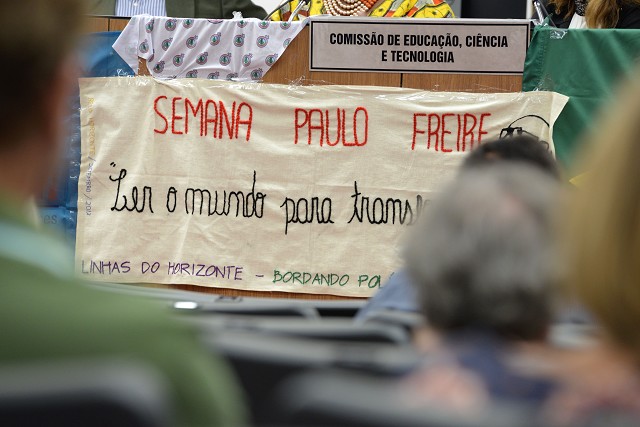 COMISSÃO DE EDUCAÇÃO, CIÊNCIA
E TECNOLOGIA
SEMANA PAULO FREIRE
"Ler o mundo para
LINHAS DO HORIZONTE - BORDANDO